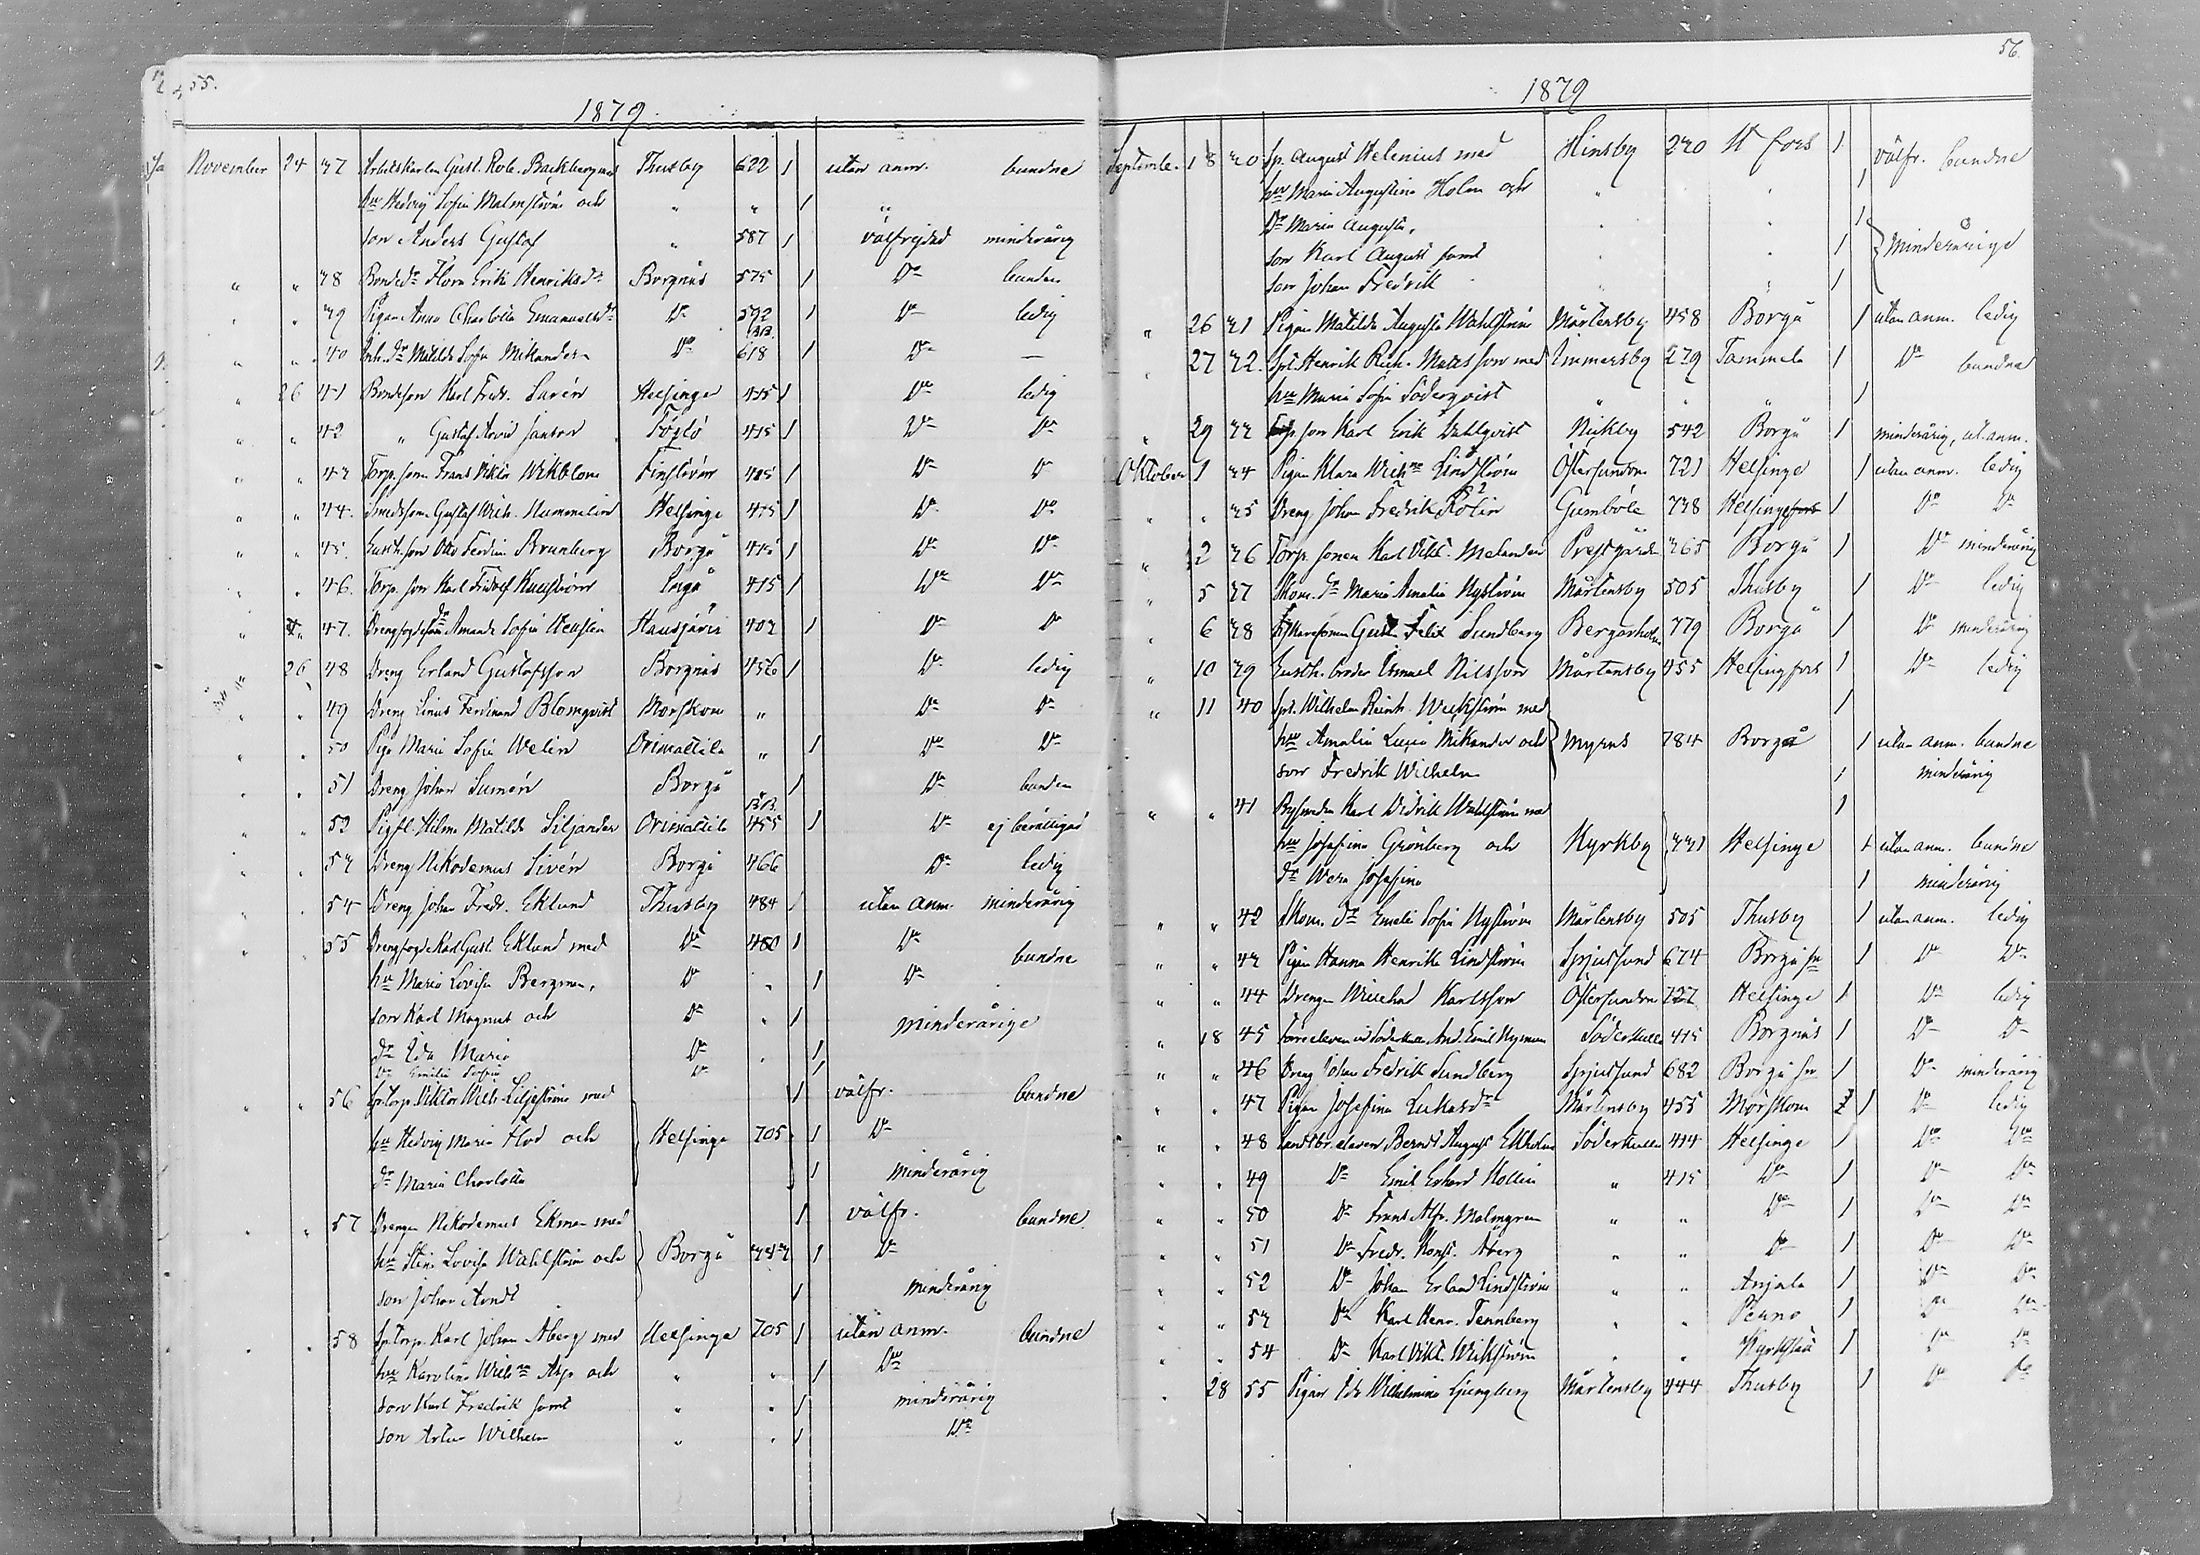 55.
1879
November 24 37 Arbetskarlen Gust. Rob. Backberg med Thusby 622 1 utan anm. bundne
hu Hedvig Sofia Malmström och " " 1 "
son Anders Gustaf " 587 1 välfrejdad minderårig
" " 38 Borgnäs 575 1 Do bunden
" " 39 Pigan Anna Charlotta Emanuelsdr Do 592 1 Do ledig
" " 40 Inh. dr Matilda Sofia Mikander Do 618 1 Do —
" 26 41 Bondeson Karl Fredr. Helsinge 415 1 Do ledig
" " 42 " Gustaf Arvid 415 1 Do Do
" " 43 Torp. son Frans Viktor Wikblom 415 1 Do Do
" " 44. Smedsson Gustaf Wilh. Helsinge 415 1 Do Do
" " 45. son Otto Ferdin. Brunberg Borgå 415 1 Do Do
" " 46. Torp. son Karl Fridolf 415 1 Do Do
" " 47. Amanda Sofia Hausjärvi 403 1 Do Do
" 26 48 Dreng Erland Gustafsson Borgnäs 456 1 Do ledig
" " 49 Dreng Linus Ferdinand Blomqvist Mörskom " Do Do
" " 50 Piga Maria Sofia Welin Orimattila " 1 Do Do
" " 51 Dreng Johan Borgå 1 Do bunden
" " 52 Hilma Matilda Siljander Orimattila 455 1 Do ej berättigad
" " 53 Dreng Nikodemus Sivén Borgå 466 Do ledig
" " 54 Dreng Johan Fredr. Eklund Thusby 484 1 utan anm. minderårig
" " 55 Drengfogd. Karl Gust. Eklund med Do 480 1 Do bundne
hu Maria Lovisa Bergman, Do " 1 Do
son Karl Magnus och Do " 1 minderårige
dr Ida Maria Do " 1
Do Emilia Sofia Do 1
" " 56 Viktor Wilh. Liljeström med 1 välfr. bundne
hu Hedvig Maria Flod och Helsinge 705 1 Do
dr Maria Charlotta 1 minderårig
" " 57 Drengen Nikodemus Ekman med 1 välfr. bundne
hu Stina Lovisa Wahlström och Borgå 1 Do
son Johan Arndt 1 minderårig
" " 58 Karl Johan Åberg med Helsinge 705 1 utan anm. bundne
hu Karolina Wilhna Asp och " " 1 Do
son Karl Fredrik samt " " 1 minderårig
son Artur Wilhelm " " 1 Do
56.
1879
Septembr. 18 30 Sp. August Helenius med Hinsby 230 H fors 1 välfr. bundne
hu Maria Augustina Holm och " " 1
Dr Maria Augusta, " " 1 minderårige
son Karl August samt " " 1
son Johan Fredrik " " 1
" 26 31 Pigan Matilda Augusta Wahlström Mårtensby 458 Borgå 1 utan anm. ledig
" 27 32. Henrik Rich. Matsson med Immersby 239 Tammela 1 Do bundne
hu Maria Sofia Söderqvist " " " 1
" 29 33 son Karl Erik Dahlqvist Nikby 542 Borgå 1 minderårig, ut. anm.
Oktober 1 34 Pigan Klara Wilhna Lindström Östersundom 721 Helsinge 1 utan anm. ledig
" " 35 Dreng Johan Fredrik Rolin Gumböle 738 Helsingefors 1 Do Do
" 2 36 Torp. sonen Karl Vikt. Melander Prestgården 365 Borgå 1 Do minderårig
" 5 37 Skom. dr Maria Amalia Nyström Mårtensby 505 Thusby 1 Do ledig
" 6 38 Felix Sundberg 779 Borgå 1 Do minderårig
" 10 39 broder Nilsson Mårtensby 455 Helsingfors 1 Do ledig
" 11 40 Wilhelm Reinh. Weckström med 1
hu Amalia Lucia Mikander och Myras 784 Borgå 1 utan anm. bundne
son Fredrik Wilhelm 1 minderårig
" " 41 Karl Didrik Wahlström med 1
hu Josefina Grönberg och Kyrkby 331 Helsinge 1 utan anm. bundne
dr Wera Josefina 1 minderårig
" " 42 Skom. dr Emelie Sofia Nyström Mårtensby 505 Thusby 1 utan anm. ledig
" " 43 Pigan Hanna Henrika Lindström Spjutsund 674 Borgå sn 1 Do Do
" " 44 Drengen Karlsson Östersundom 727 Helsinge 1 Do ledig
" 18 45 And. Emil Nyman Söderkulla 415 Borgnäs 1 Do Do
" " 46 Dreng Johan Fredrik Sundberg Spjutsund 682 Borgå sn 1 Do minderårig
" " 47 Pigan Josefina Lukasdr Mårtensby 455 Mörskom 1 Do ledig
" " 48 Landtbr. eleven Berndt August Ekholm Söderkulla 414 Helsinge 1 Do Do
" " 49 Do Emil Erhard Kollin " 415 Do 1 Do Do
" " 50 Do Frans Alfr. Malmgren " " Do 1 Do Do
" " 51 Do Fredr. Konst. Åberg " " Do 1 Do Do
" " 52 Do Johan Erland Lindström " " Anjala 1 Do Do
" " 53 Do Karl Henr. Tennberg " " Perno 1 Do Do
" " 54 Do Karl Vikt. Wikström " " Kyrkslätt 1 Do Do
" 28 55 Pigan Ida Wilhelmina Ljungberg Mårtensby 444 Thusby 1 Do Do